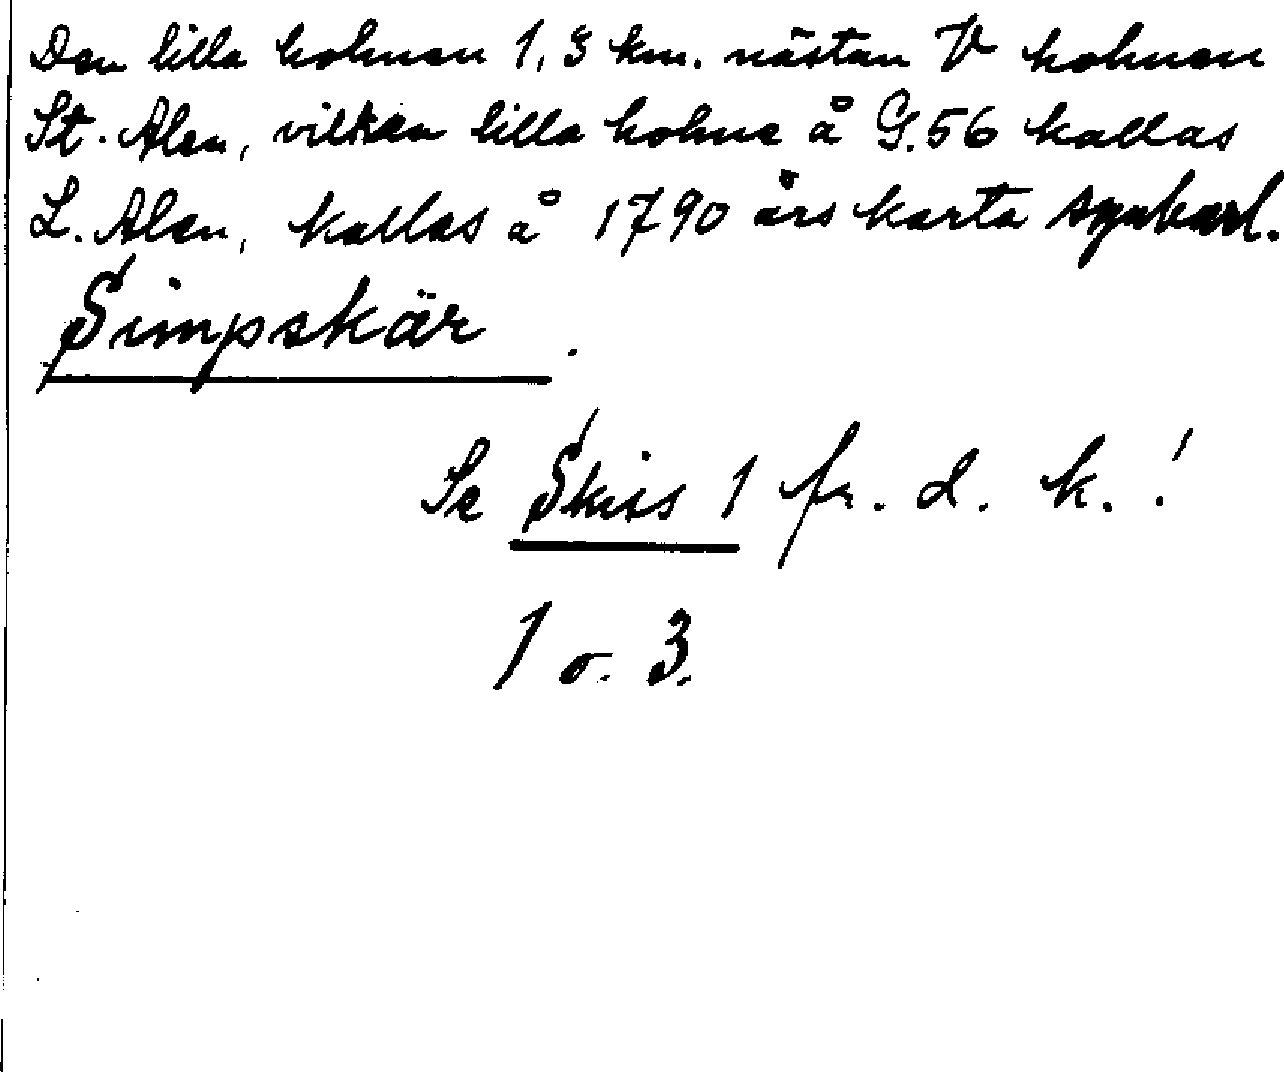 Den lilla holmen 1,3 km. nästan V holmen
St. Alen, vilken lilla holme å G.56 kallas
L. Alen, kallas å 1790 års karta synbarl.
Simpskär.
Se Skiss 1 fr. d. k.!
1 o. 3.